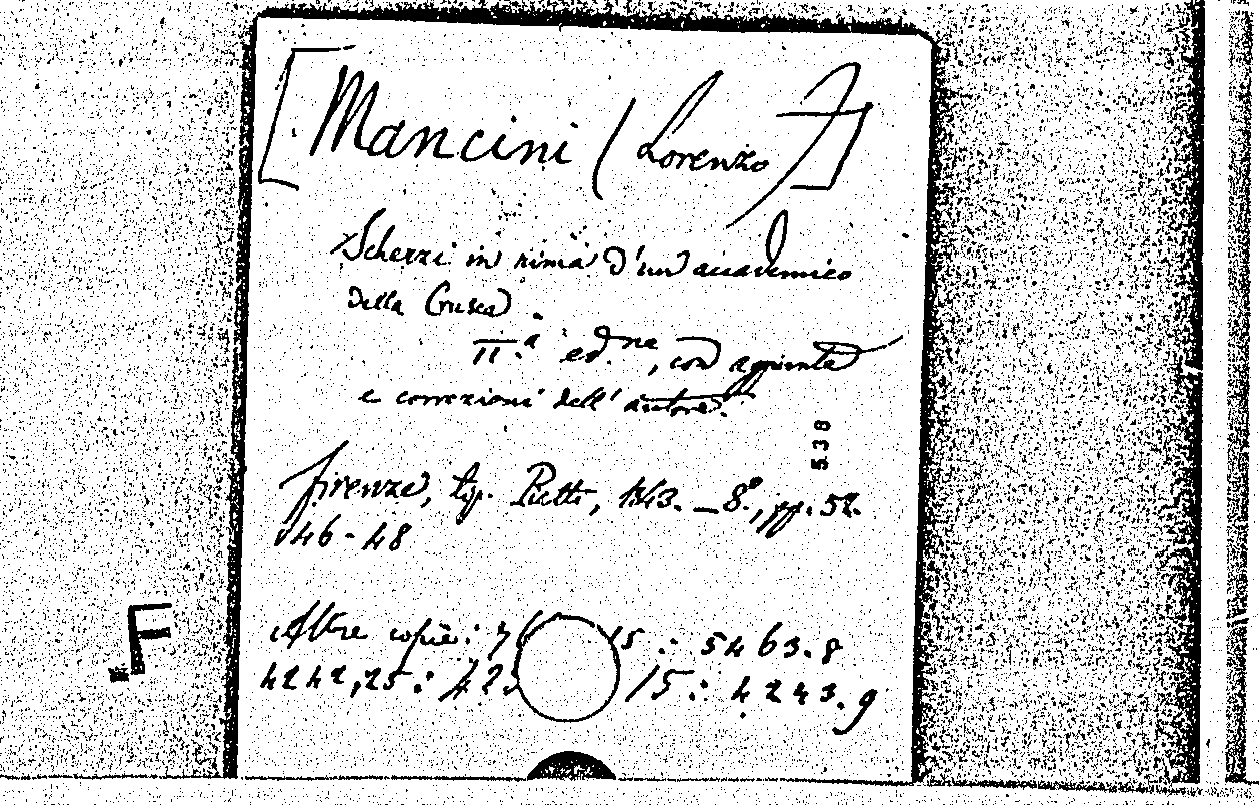 [Mancini (Lorenzo)]
Scherzi in rima d'un accademico
della Crusca.
II.a ed.ne, con aggiunte
e correzioni dell'autore.
538
Firenze, tip. Piatti, 1843. _ 8°, pp. 52.
46-48
Altre copie: 15 : 5463.8
4242,25 : 15 : 4243.9
F